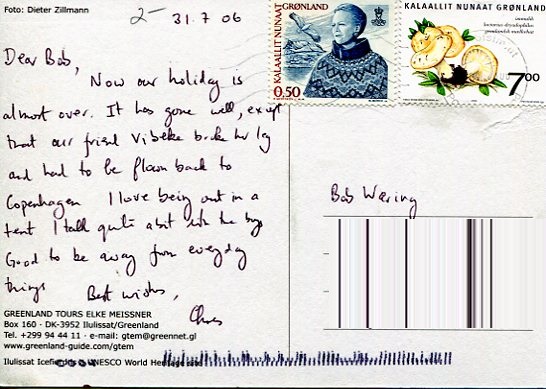 Foto: Dieter Zillmann
2- 31.7 06
Dear Bob,
Now our holiday is
almost over. It has gone well, except
that our friend Vibeke broke her leg
and had to be flown back to
Copenhagen I love being out in a
tent I talk quite a bit with the boys
Good to be away from everyday
things
Best wishes,
GREENLAND TOURS ELKE MEISSNER
Box 160 · DK-3952 Ilulissat/Greenland
Tel. +299 94 44 11 · e-mail: gtem@greennet.gl
www.greenland-guide.com/gtem
Ilulissat Icefjord UNESCO World Heritage
KALAALLIT NUNAAT GRØNLAND
0.50
KALAALLIT NUNAAT GRØNLAND
lactarius dryadophilus
grønlandsk mælkehat
7.00
Bob Wæring